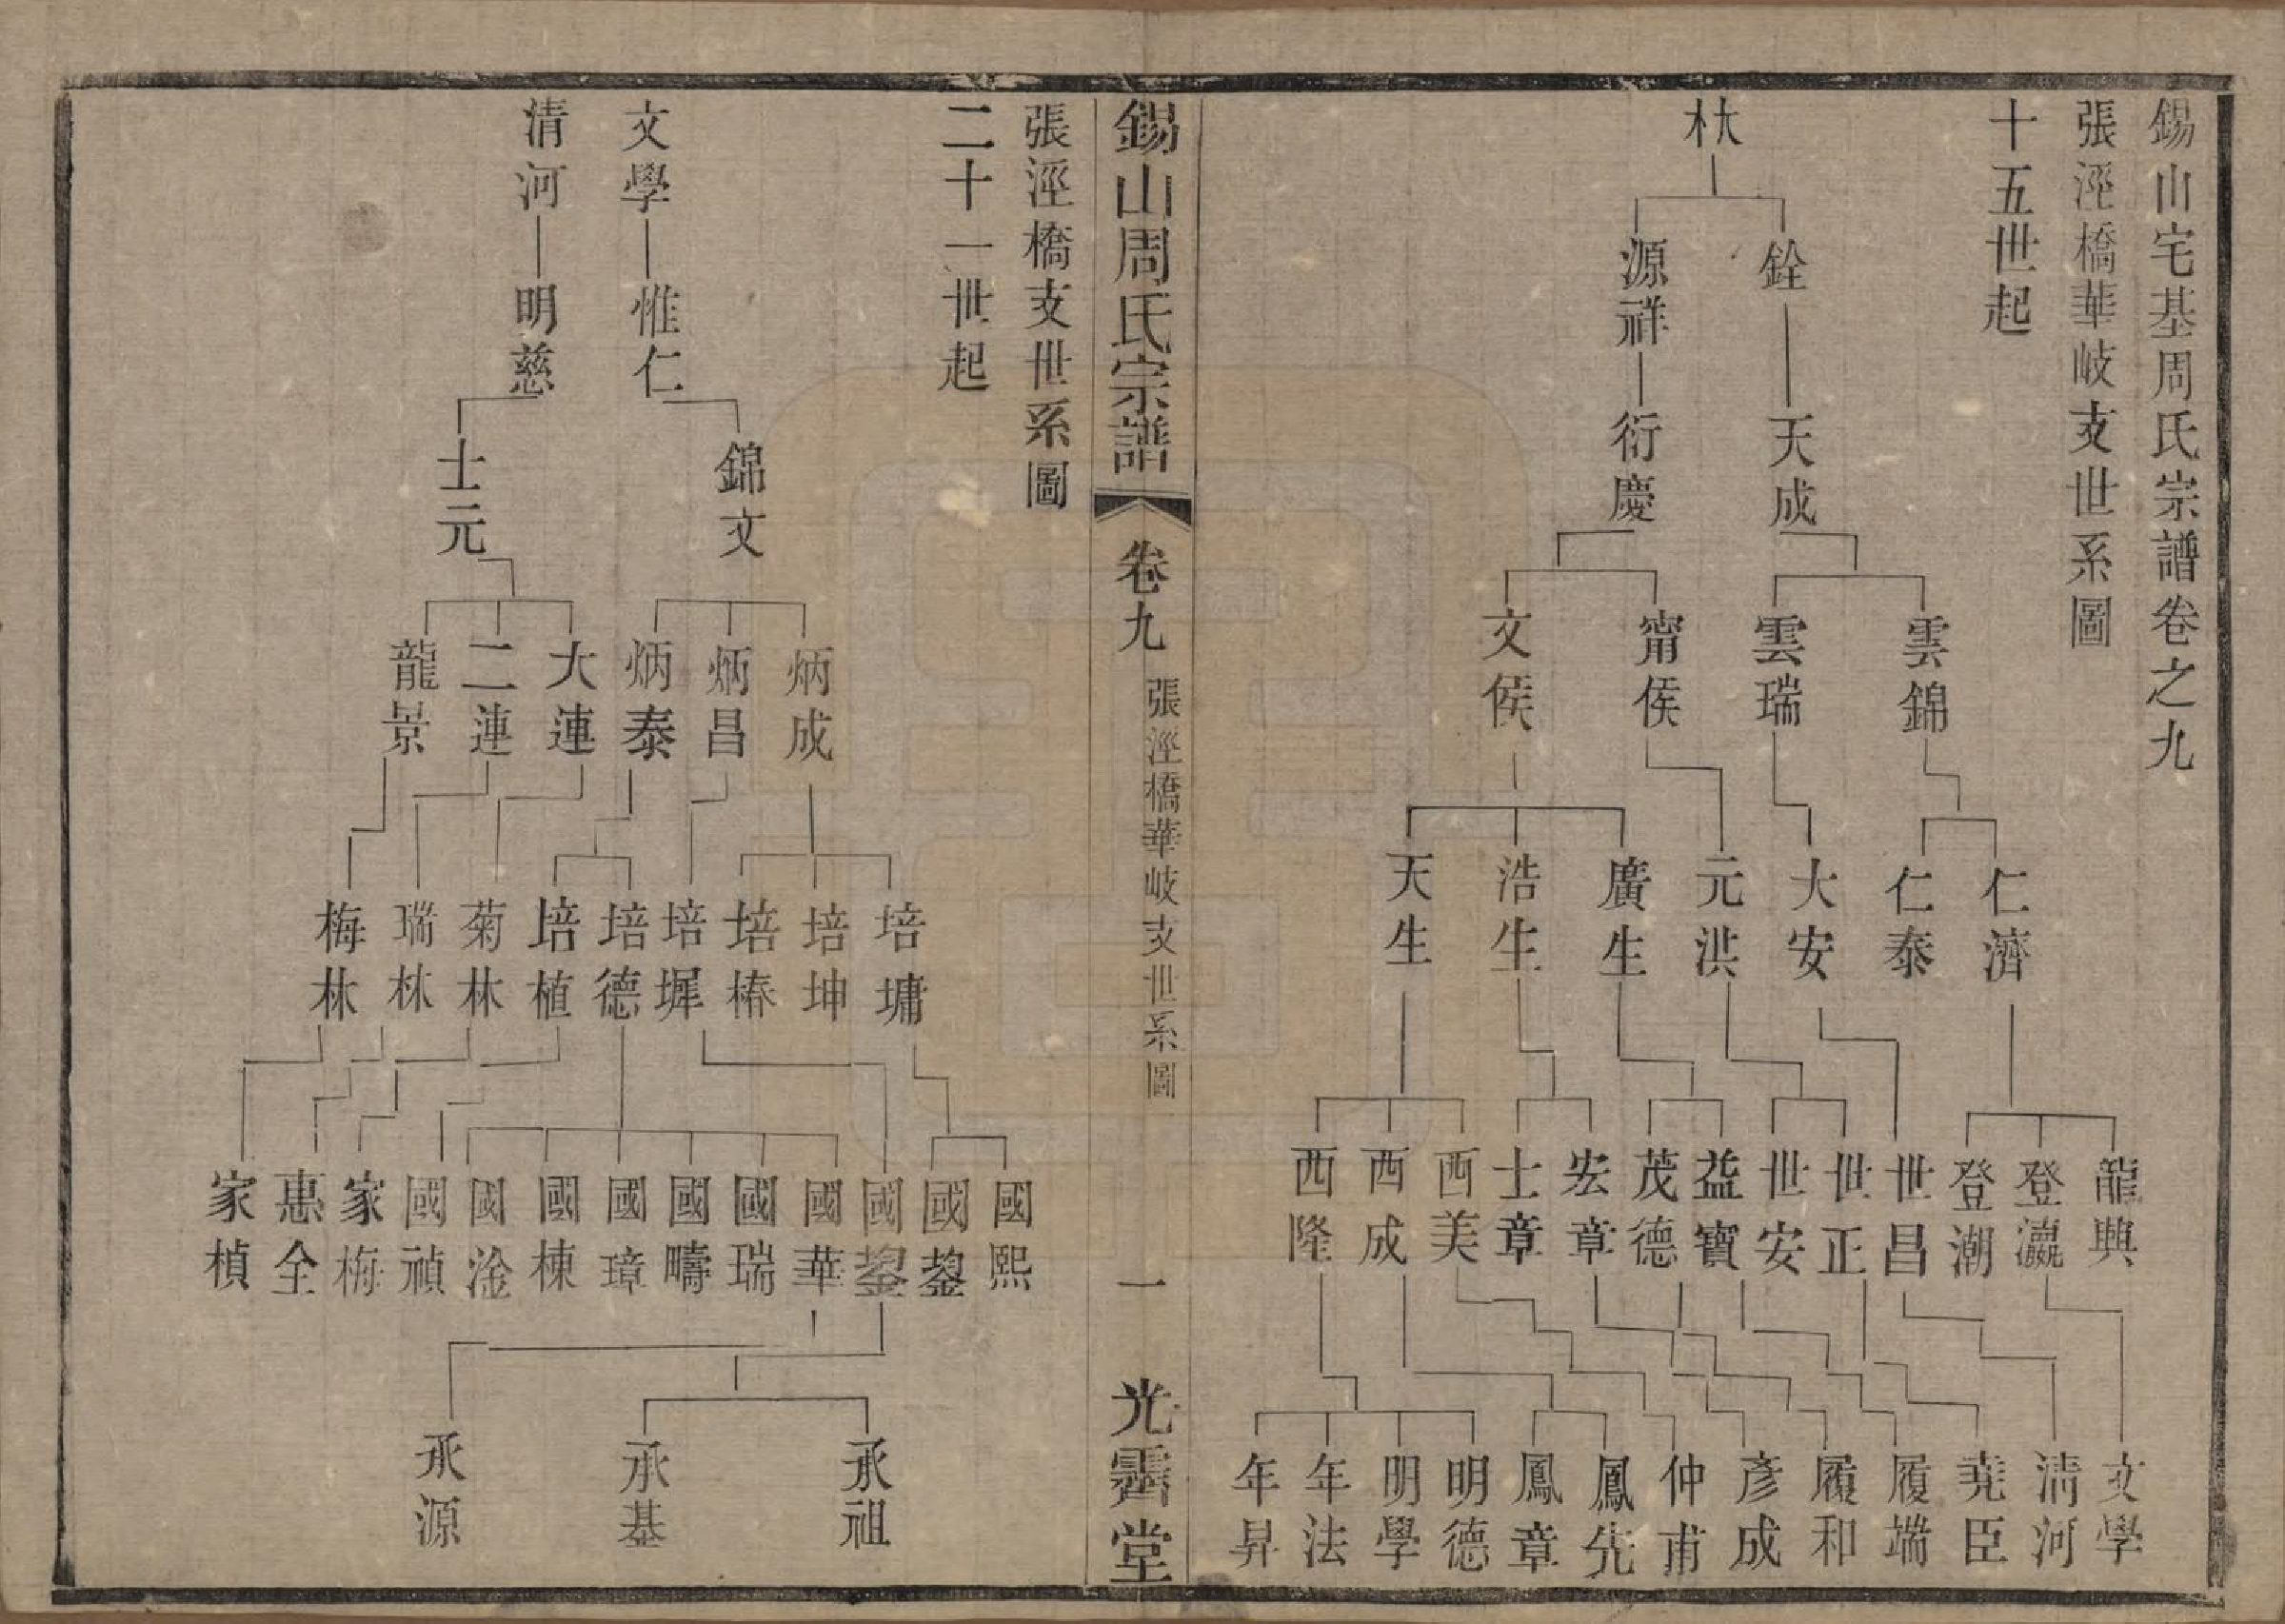 錫山宅基周氏宗譜卷之九
張涇橋華岐支世系圖
十五世起
杕
銓
源祥
天成
衍慶
雲錦
雲瑞
甯侯
文侯
仁濟
仁泰
大安
元洪
廣生
浩生
天生
龍興
登瀛
登潮
世昌
世正
世安
益寶
茂德
宏章
士章
西美
西成
西隆
文學
清河
堯臣
履端
履和
彥成
仲甫
鳳先
鳳章
明德
明學
年法
年昇
錫山周氏宗譜
卷九
張涇橋華岐支世系圖
一
光霽堂
張涇橋支世系圖
二十一世起
文學
惟仁
清河
明慈
錦文
士元
炳成
炳昌
炳泰
大連
二連
龍景
培墉
培坤
培椿
培墀
培德
培植
菊林
瑞林
梅林
國熙
國鋆
國鋆
國華
國瑞
國疇
國璋
國棟
國淦
國禎
家梅
惠全
家楨
承祖
承基
承源